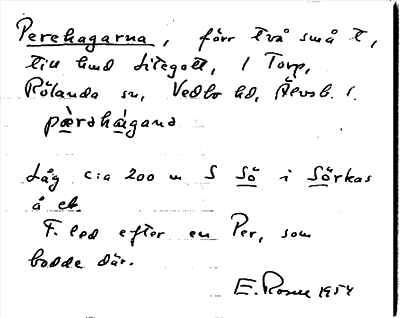 Perehagarna, förr två små t,
till hmd Sitegott, 1 Torp,
Rölanda sn, Vedbo hd, Älvsb. l.
pærəhágana
Låg c:a 200 m S Sö i Sörkas
å et.
F. led efter en Per, som
bodde där.
E. Rosen 1954